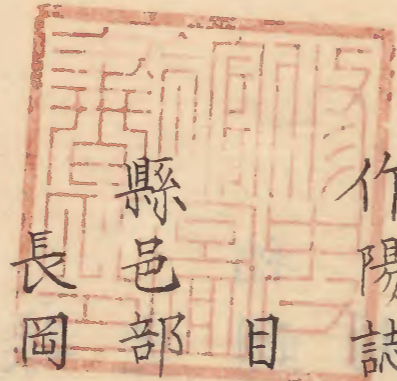 作陽誌
目
縣邑部
長岡